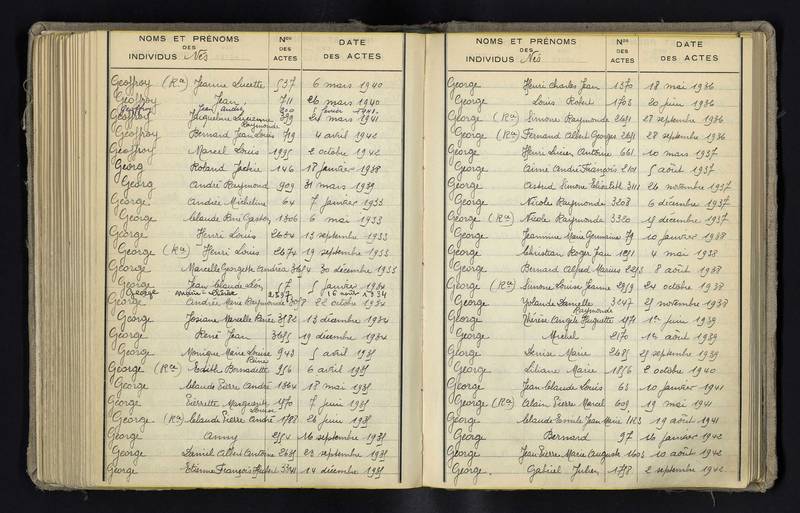 NOMS ET PRÉNOMS
DES
INDIVIDUS Nés
Nos
DES
ACTES
DATE
DES ACTES
Geoffroy (Ra) Jeanne Lucette 537 6 mars 1940
Geoffroy Jean 711 26 mars 1940
Geoffroy Jean André 300 5 1941
Geoffroy Jacqueline Lucienne Raymonde 399 24 mars 1941
Geoffroy Bernard Jean Louis 719 4 avril 1942
Geoffroy Marcel Louis 1995 2 octobre 1942
Georg Roland 146 18 janvier 1938
Georg André Raymond 909 31 mars 1939
George Andrée Micheline 64 7 janvier 1933
George Claude René Gaston 1306 6 mai 1933
George Henri Louis 2634 13 septembre 1933
George (Ra) Henri Louis 2674 19 septembre 1933
George Marcelle Georgette Andréa 3654 30 décembre 1933
George Jean Claude Léon 57 5 janvier 1934
George 2397 16 août 1934
George Andrée Marie Raymonde 3058 22 octobre 1934
George Josiane Marcelle Renée 3582 13 décembre 1934
George René Jean 3635 19 décembre 1934
George Monique Marie Louise Renée 943 5 avril 1935
George (Ra) Edith Bernadette 956 6 avril 1935
George Claude Pierre André 1364 18 mai 1935
George Pierrette Marguerite Louise 1570 7 juin 1935
George (Ra) Claude Pierre André 1758 26 juin 1935
George Anny 2554 16 septembre 1935
George Daniel Albert Antoine 2635 23 septembre 1935
George Etienne François Hubert 3341 14 décembre 1935
NOMS ET PRÉNOMS
DES
INDIVIDUS Nés
Nos
DES
ACTES
DATE
DES ACTES
George Henri Charles Jean 1370 18 mai 1936
George Louis Robert 1703 20 juin 1936
George (Ra) Simone Raymonde 2651 28 septembre 1936
George (Ra) Fernand Albert Georges 2651 28 septembre 1936
George Henri Lucien Antoine 661 10 mars 1937
George Aimé André François 2101 5 août 1937
George Astrid Simone Elisabeth 3111 26 novembre 1937
George Nicole Raymonde 3208 6 décembre 1937
George (Ra) Nicole Raymonde 3320 15 décembre 1937
George Jeannine Marie Germaine 79 10 janvier 1938
George Christian Roger Jean 1251 4 mai 1938
George Bernard Alfred Marius 2253 8 août 1938
George (Ra) Simone Louise Jeanne 2959 24 octobre 1938
George Yolande Danielle 3247 25 novembre 1938
George Thérèse Angèle Huguette Raymonde 1571 12 juin 1939
George Michel 2170 12 août 1939
George Denise Marie 2685 25 septembre 1939
George Liliane Marie 1856 2 octobre 1940
George Jean Claude Louis 63 10 janvier 1941
George (Ra) Alain Pierre Marcel 609 19 mai 1941
George Claude Emile Jean Marie 1123 19 août 1941
George Bernard 97 16 janvier 1942
George Jean Pierre Marie Auguste 1603 10 août 1942
George Gabriel Julien 1758 2 septembre 1942